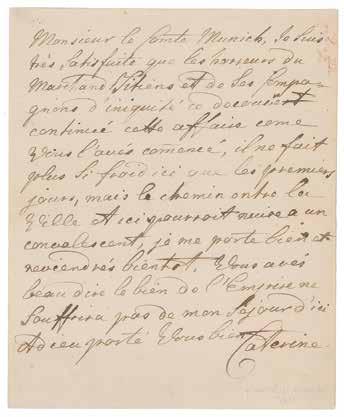 Monsieur le Comte Munich, Je suis
très satisfaite que les horreurs du
Marchand et de Ses Compa-
gnons d'iniquité ce decouvrent
continuee cette affaire come
Vous l'avés comencé, il ne fait
plus Si froid ici que les premiers
jours, mais le chemin entre la
Ville et ici pourroit nuire a un
convalescent, je me porte bien et
reviendrés bientot. Vous avés
beau dire le bien de l'Empire ne
Souffrira pas de mon Séjour d'ici
Adieu porté Vous bien Caterine